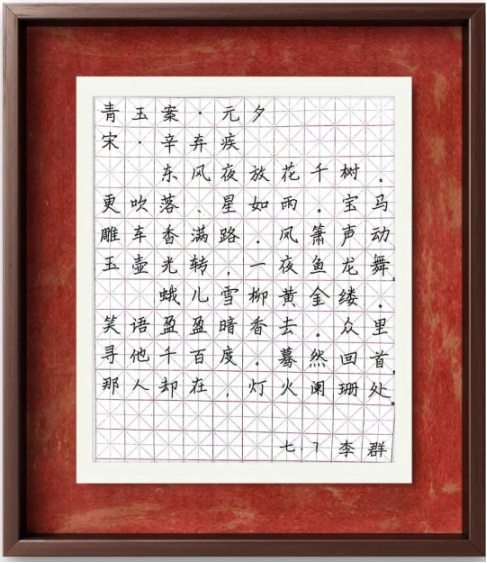 青玉案·元夕
宋·辛弃疾
东风夜放花千树.
更吹落、星如雨.宝马
雕车香满路.凤箫声动
玉壶光转,一夜鱼龙舞.
蛾儿雪柳黄金缕.
笑语盈盈暗香去.众里
寻他千百度.蓦然回首
那人却在,灯火阑珊处.
七.7李群